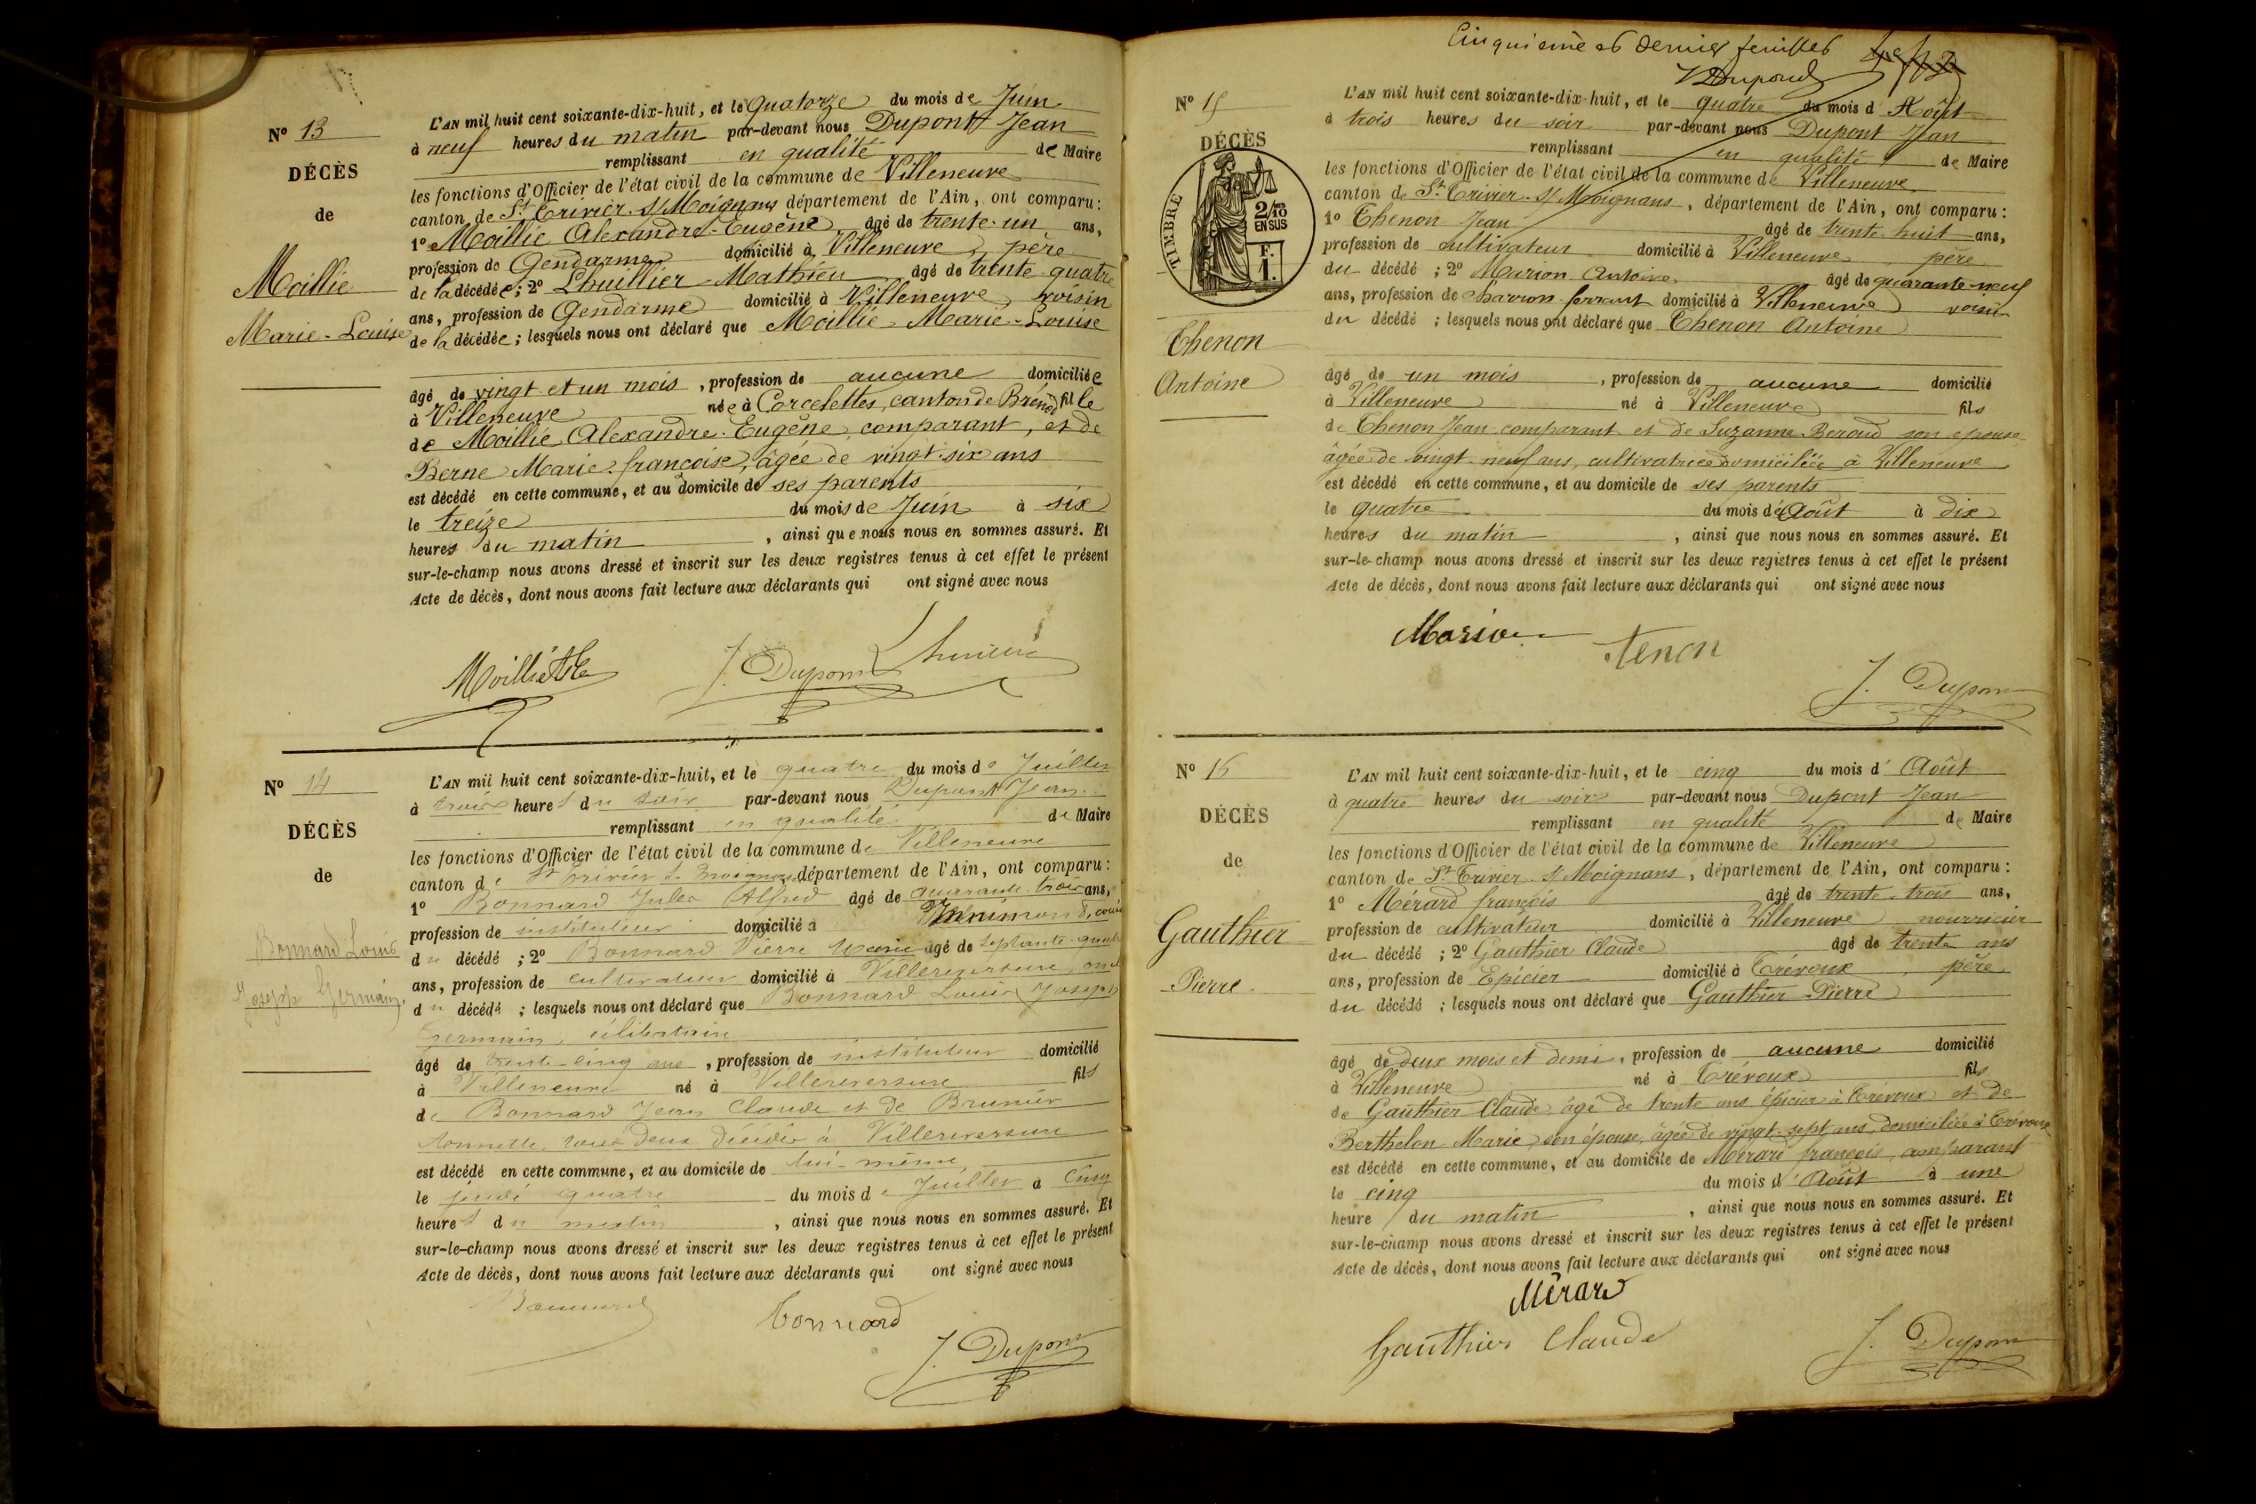 Nº 13
DÉCÈS
de
Moillie
Marie-Louise
L'AN mil huit cent soixante-dix-huit, et le quatorze du mois de Juin
à neuf heures du matin par-devant nous Dupont Jean
remplissant en qualité de Maire
les fonctions d'Officier de l'état civil de la commune de Villeneuve
canton de St Trivier s/ Moignans département de l'Ain, ont comparu :
1º Moillie Alexandre-Eugène âgé de trente-un ans,
profession de Gendarme domicilié à Villeneuve, père
de la décédée ; 2º Lhuillier Mathieu âgé de trente-quatre
ans, profession de Gendarme domicilié à Villeneuve, voisin
de la décédée ; lesquels nous ont déclaré que Moillie Marie-Louise
âgé de vingt et un mois, profession de aucune domiciliée
à Villeneuve née à Corcelettes, canton de Brénod fille
de Moillie Alexandre-Eugène, comparant, et de
Berne Marie-françoise, âgée de vingt-six ans
est décédé en cette commune, et au domicile de ses parents
le treize du mois de Juin à six
heures du matin, ainsi que nous nous en sommes assuré. Et
sur-le-champ nous avons dressé et inscrit sur les deux registres tenus à cet effet le présent
Acte de décès, dont nous avons fait lecture aux déclarants qui ont signé avec nous
J. Dupont
Nº 14
DÉCÈS
de
Bonnard Louis
Joseph Germain
L'AN mil huit cent soixante-dix-huit, et le quatre du mois de Juillet
à trois heures du soir par-devant nous Dupont Jean
remplissant en qualité de Maire
les fonctions d'Officier de l'état civil de la commune de Villeneuve
canton de St Trivier s. Moignans département de l'Ain, ont comparu :
1º Bonnard Jules Alfred âgé de quarante-trois ans,
profession de instituteur domicilié à
du décédé ; 2º Bonnard Pierre Marie âgé de septante-quatre
ans, profession de cultivateur domicilié à Villereversure, oncle
du décédé ; lesquels nous ont déclaré que Bonnard Louis Joseph
Germain, célibataire
âgé de trente-cinq ans, profession de instituteur domicilié
à Villeneuve né à Villereversure fils
de Bonnard Jean Claude et de Brunier
tous deux décédés à Villereversure
est décédé en cette commune, et au domicile de lui-même
le jeudi quatre du mois de Juillet à cinq
heures du matin, ainsi que nous nous en sommes assuré. Et
sur-le-champ nous avons dressé et inscrit sur les deux registres tenus à cet effet le présent
Acte de décès, dont nous avons fait lecture aux déclarants qui ont signé avec nous
Bonnard bonnard
J. Dupont
Cinquième et dernier feuillet
Dupond
Nº 15
DÉCÈS
TIMBRE
2/10
EN SUS
F.
1.
Thenon
Antoine
L'AN mil huit cent soixante-dix-huit, et le quatre du mois d'Août
à trois heures du soir par-devant nous Dupont Jean
remplissant en qualité de Maire
les fonctions d'Officier de l'état civil de la commune de Villeneuve
canton de St Trivier s/ Moignans, département de l'Ain, ont comparu :
1º Thenon Jean âgé de trente-huit ans,
profession de cultivateur domicilié à Villeneuve, père
du décédé ; 2º Marion Antoine âgé de quarante-neuf
ans, profession de charron-ferrant domicilié à Villeneuve voisin
du décédé ; lesquels nous ont déclaré que Thenon Antoine
âgé de un mois, profession de aucune domicilié
à Villeneuve né à Villeneuve fils
de Thenon Jean comparant et de Suzanne Beroud son épouse
âgée de vingt-neuf ans, cultivatrice domiciliée à Villeneuve
est décédé en cette commune, et au domicile de ses parents
le quatre du mois d'Août à dix
heures du matin, ainsi que nous nous en sommes assuré. Et
sur-le-champ nous avons dressé et inscrit sur les deux registres tenus à cet effet le présent
Acte de décès, dont nous avons fait lecture aux déclarants qui ont signé avec nous
Marion tenon
J. Dupont
Nº 16
DÉCÈS
de
Gauthier
Pierre
L'AN mil huit cent soixante-dix-huit, et le cinq du mois d'Août
à quatre heures du soir par-devant nous Dupont Jean
remplissant en qualité de Maire
les fonctions d'Officier de l'état civil de la commune de Villeneuve
canton de St Trivier s/ Moignans, département de l'Ain, ont comparu :
1º Mérard françois âgé de trente-trois ans,
profession de cultivateur domicilié à Villeneuve nourricier
du décédé ; 2º Gauthier Claude âgé de trente ans
ans, profession de Epicier domicilié à Trévoux, père
du décédé ; lesquels nous ont déclaré que Gauthier Pierre
âgé de deux mois et demi, profession de aucune domicilié
à Villeneuve né à Trévoux fils
de Gauthier Claude âgé de trente ans épicier à Trévoux et de
Berthelon Marie, son épouse, âgée de vingt-sept ans, domiciliée à Trévoux
est décédé en cette commune, et au domicile de Mérard françois, comparant
le cinq du mois d'Août à une
heure du matin, ainsi que nous nous en sommes assuré. Et
sur-le-champ nous avons dressé et inscrit sur les deux registres tenus à cet effet le présent
Acte de décès, dont nous avons fait lecture aux déclarants qui ont signé avec nous
Mérard
Gauthier Claude
J. Dupont